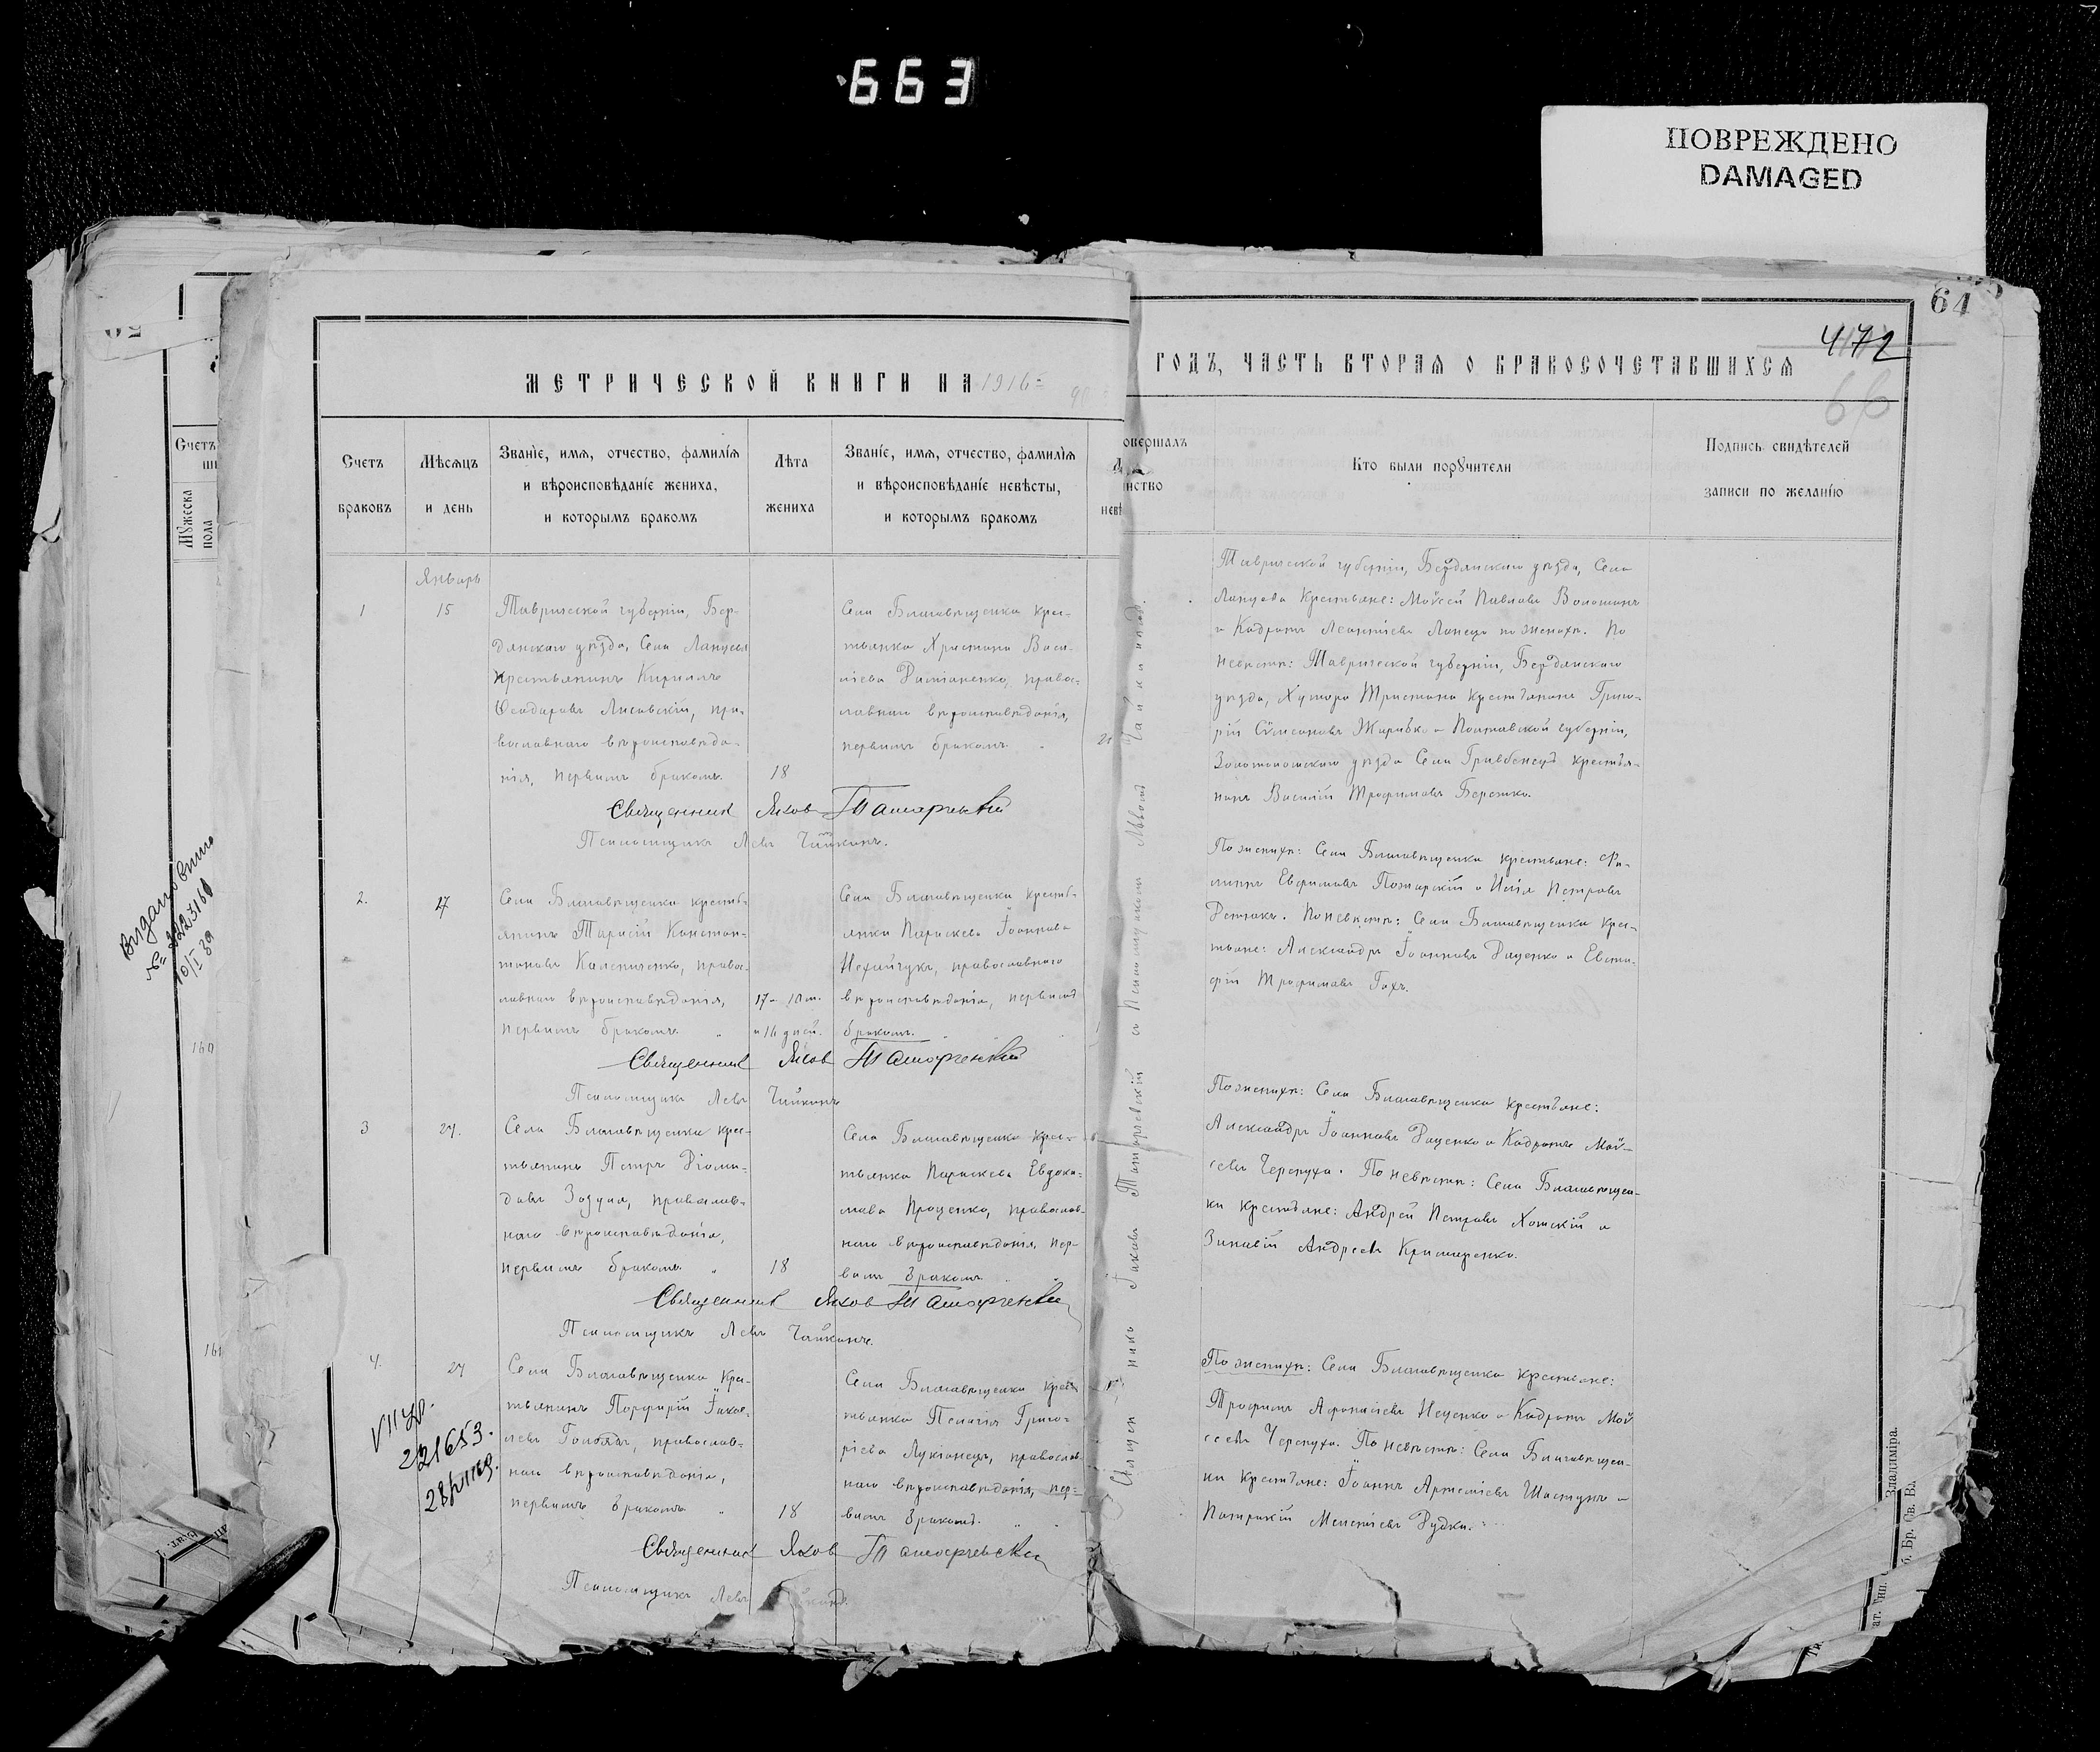 663
ПОВРЕЖДЕНО
DAMAGED
64
472
66
МЕТРИЧЕСКОЙ КНИГИ НА 1916
ГОДЪ, ЧАСТЬ ВТОРАЯ О БРАКОСОЧЕТАВШИХСЯ
Счетъ
браковъ
Мѣсяцъ
и день
Званіе, имя, отчество, фамилія
и вѣроисповѣданіе жениха,
и которымъ бракомъ
Лѣта
жениха
Званіе, имя, отчество, фамилія
и вѣроисповѣданіе невѣсты,
и которымъ бракомъ
Кто были поручители
Подпись свидѣтелей
записи по желанію
Счетъ
Мужеска
пола
Январь
1
15
Таврической губерніи, Бер-
дянскаго уѣзда, Села Ланцева
Крестьянинъ Кириллъ
Ѳеодоровъ Лисовскій, пра-
вославнаго вѣроисповѣда-
нія, первымъ бракомъ.
18
Села Благовѣщенки крес-
тьянка Христина Васи-
ліева Романенко, правос-
лавнаго вѣроисповѣданія,
первымъ бракомъ
21
Таврической губерніи, Бердянскаго уѣзда, Села
Ланцева Крестьяне: Моѵсей Павловъ Волошинъ
и Кодратъ Леонтіевъ Ланецъ по женихѣ. По
невѣстѣ: Таврической губерніи, Бердянскаго
уѣзда, Хутора Тристана крестьянинъ Григо-
рій Сѵмеоновъ Жарибко и Полтавской губерніи,
Золотоношскаго уѣзда Села крестья-
нинъ Василій Трофимовъ Бережко.
Священникъ Яковъ Таторчевскій
Псаломщикъ Левъ Чайкинъ.
2.
17
Села Благовѣщенки кресть-
янинъ Тарасій Констан-
тиновъ Калениченко, правос-
лавнаго вѣроисповѣданія,
первымъ бракомъ.
17 - 10 м.
и 16 дней.
Села Благовѣщенки кресть-
янка Параскева Іоаннова
Нечайчукъ, православнаго
вѣроисповѣданія, первымъ
бракомъ.
По женихѣ: Села Благовѣщенки крестьяне: Фи-
липпъ Евфимовъ Пожарскій и Илія Петровъ
По невѣстѣ: Села Благовѣщенки крес-
тьяне: Александръ Іоанновъ Раценко и Евста-
фій Трофимовъ Гохъ.
Священникъ Яковъ Таторчевскій
Псаломщикъ Левъ Чайкинъ
3
24.
Села Благовѣщенки крес-
тьянинъ Петръ Діоми-
довъ Зозуля, православ-
наго вѣроисповѣданія,
первымъ бракомъ
18
Села Благовѣщенки крес-
тьянка Параскева Евдоки-
мова Проценко, православ-
наго вѣроисповѣданія, пер-
вымъ бракомъ
По женихѣ: Села Благовѣщенки крестьяне:
Александръ Іоанновъ Раценко и Кодратъ Моѵ-
сеевъ Черепуха. По невѣстѣ: Села Благовѣщен-
ки крестьяне: Андрей Петровъ Хотскій и
Зиновій Андреевъ Крамаренко.
Священникъ Яковъ Таторчевскій
Псаломщикъ Левъ Чайкинъ.
4.
24
Села Благовѣщенки Крес-
тьянинъ Порфирій Іаков-
левъ православ-
наго вѣроисповѣданія,
первымъ бракомъ
18
Села Благовѣщенки Крес-
тьянка Пелагія Григо-
ріева Лукіянецъ, православ-
наго вѣроисповѣданія, пер-
вымъ бракомъ.
По женихѣ: Села Благовѣщенки крестьяне:
Трофимъ Афанасіевъ Ищенко и Кодратъ Моѵ
сеевъ Черепуха. По невѣстѣ: Села Благовѣщен-
ки Крестьяне: Іоаннъ Артеміевъ Шастунъ и
Патрикій Мелетіевъ Рудка.
Священникъ Яковъ Таторчевскій
Псаломщикъ Левъ
Священникъ Іаковъ Таторчевскій съ Псаломщикомъ Львомъ Чайкинымъ.
Видано
10/I 39
160
161
221653.